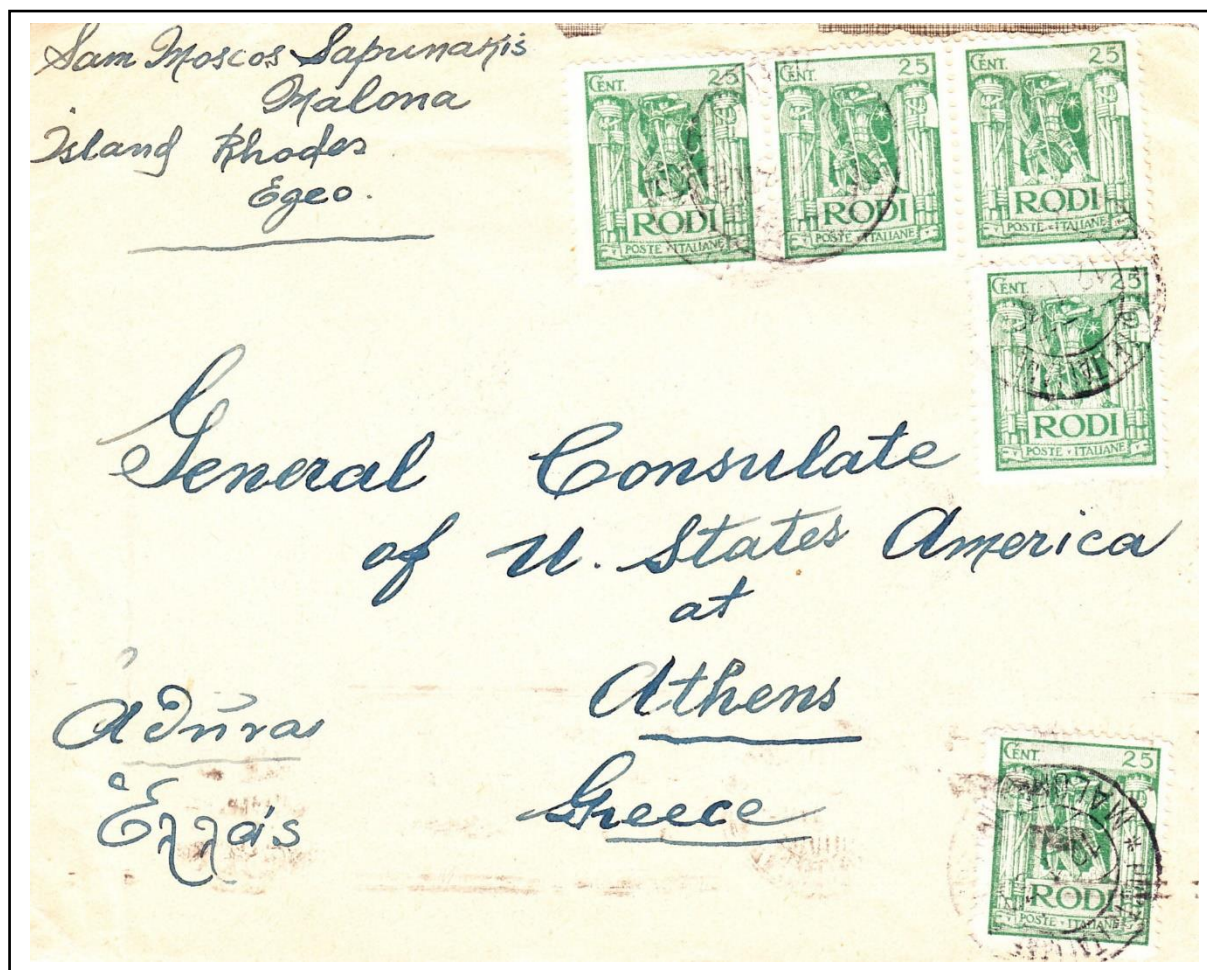 Sam Moscos Sapunakis
Malona
Island Rhodes
Egeo.
CENT. 25
RODI
POSTE ITALIANE
CENT. 25
RODI
POSTE ITALIANE
CENT. 25
RODI
POSTE ITALIANE
CENT. 25
RODI
POSTE ITALIANE
General Consulate
of U. States America
at
Athens
Greece
Αθήνας
Ελλάς
CENT. 25
RODI
POSTE ITALIANE